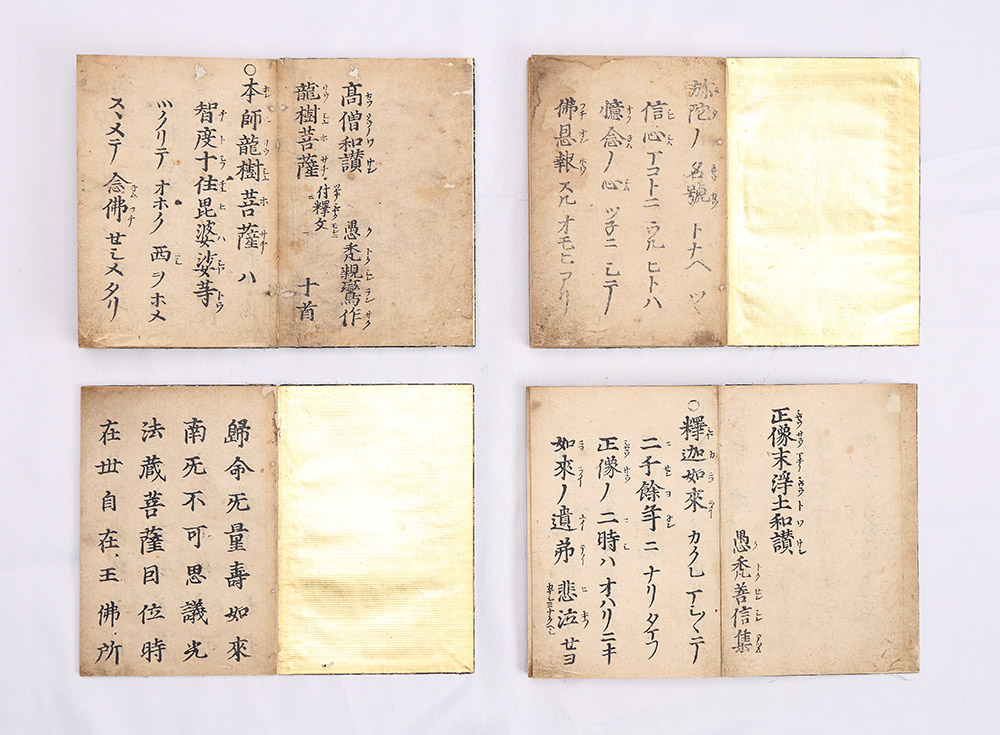 高僧和讃
愚禿親鸞作
付釋文
龍樹菩薩 十首
○本師龍樹菩薩ハ
智度十住毘婆娑等
ツクリテオホク西ヲホメ
スヽメテ念佛セシメタリ
弥陀ノ名號トナヘツヽ
信心マコトニウルヒトハ
憶念ノ心ツネニシテ
佛恩報スルオモヒアリ
歸命无量壽如來
南无不可思議光
法蔵菩薩因位時
在世自在王佛所
正像末浄土和讃
愚禿善信集
○釋迦如來カクレマシ〳〵テ
二千餘年ニナリタマフ
正像ノ二時ハオハリニキ
如來ノ遺弟悲泣セヨ